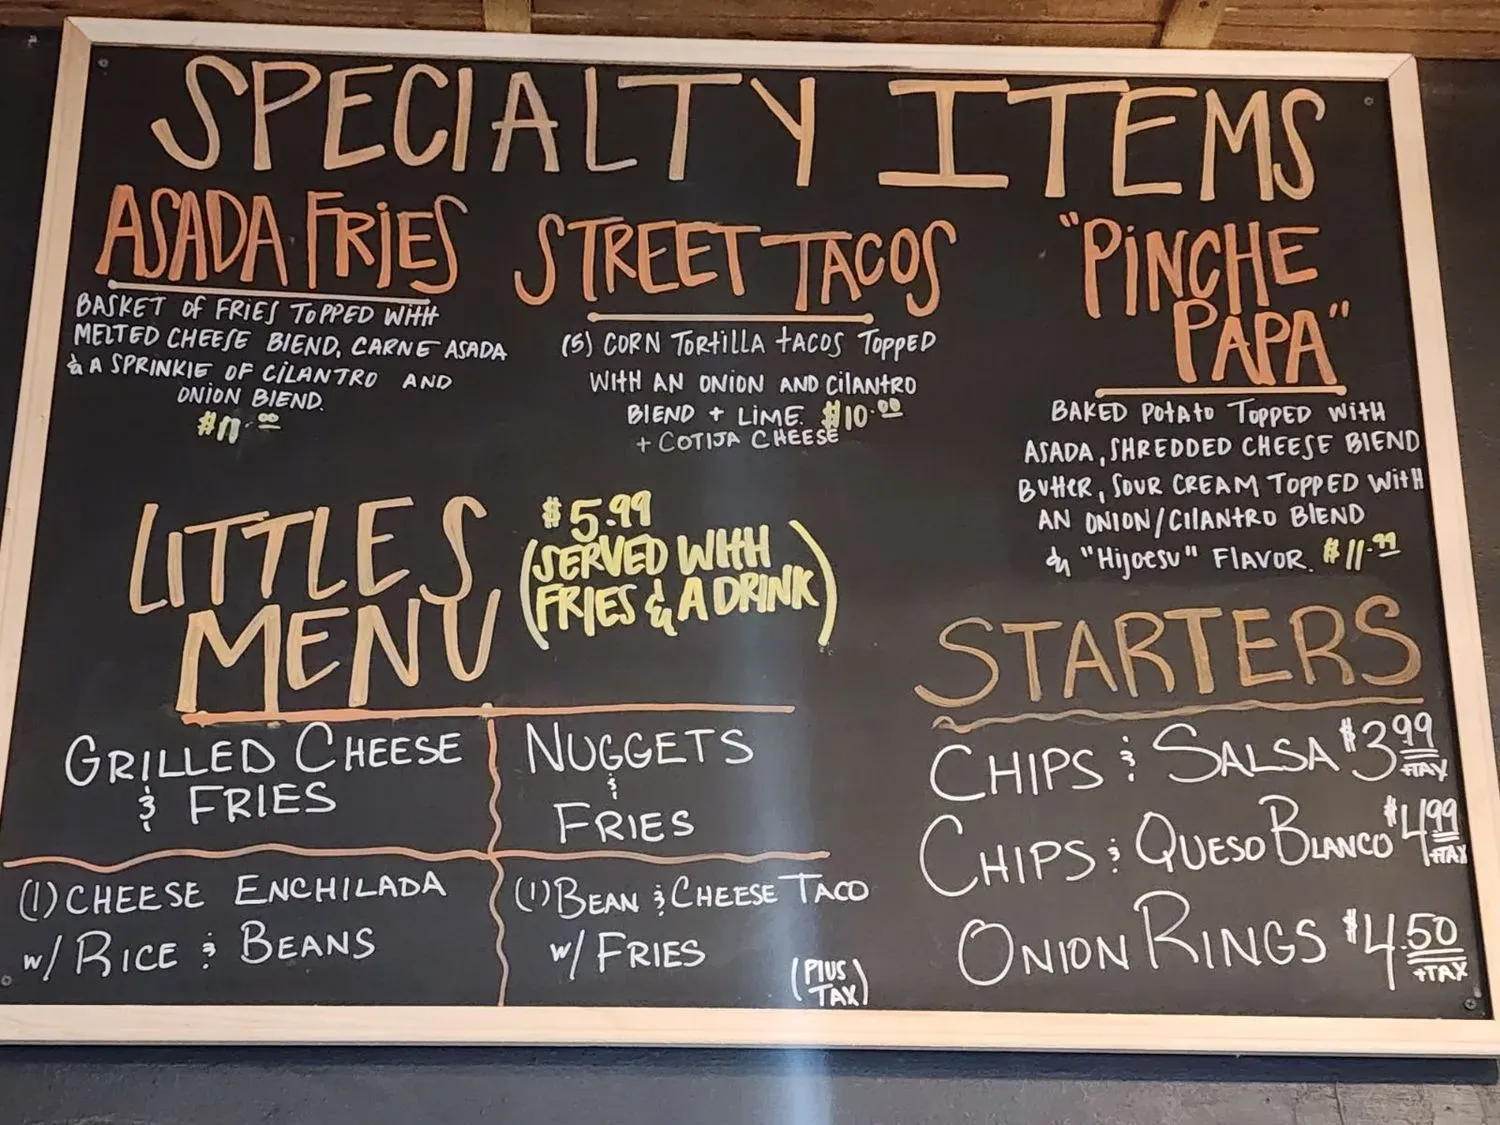 SPECIALTY ITEMS
ASADA FRIES
BASKET OF FRIES TOPPED WITH
MELTED CHEESE BLEND, CARNE ASADA
& A SPRINKLE OF CILANTRO AND
ONION BLEND.
$11.00
STREET TACOS
(5) CORN TORTILLA TACOS TOPPED
WITH AN ONION AND CILANTRO
BLEND + LIME. $10.00
+ COTIJA CHEESE
"PINCHE
PAPA"
BAKED POTATO TOPPED WITH
ASADA, SHREDDED CHEESE BLEND
BUTTER, SOUR CREAM TOPPED WITH
AN ONION/CILANTRO BLEND
& "Hijoesu" FLAVOR. $11.99
LITTLES
MENU
$5.99
(SERVED WITH
FRIES & A DRINK)
GRILLED CHEESE
& FRIES
NUGGETS
&
FRIES
(1) CHEESE ENCHILADA
w/ RICE & BEANS
(1) BEAN & CHEESE TACO
w/ FRIES
(PLUS
TAX)
STARTERS
CHIPS & SALSA $3.99 +TAX
CHIPS & QUESO BLANCO $4.99 +TAX
ONION RINGS $4.50 +TAX